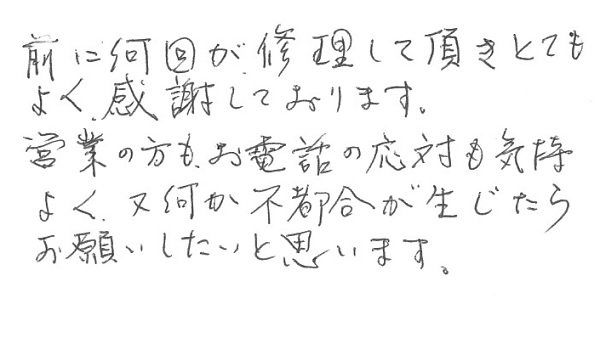 前に何回が修理して頂きとても
よく、感謝しております。
営業の方も、お電話の応対も気持
よく、又何か不都合が生じたら
お願いしたいと思います。